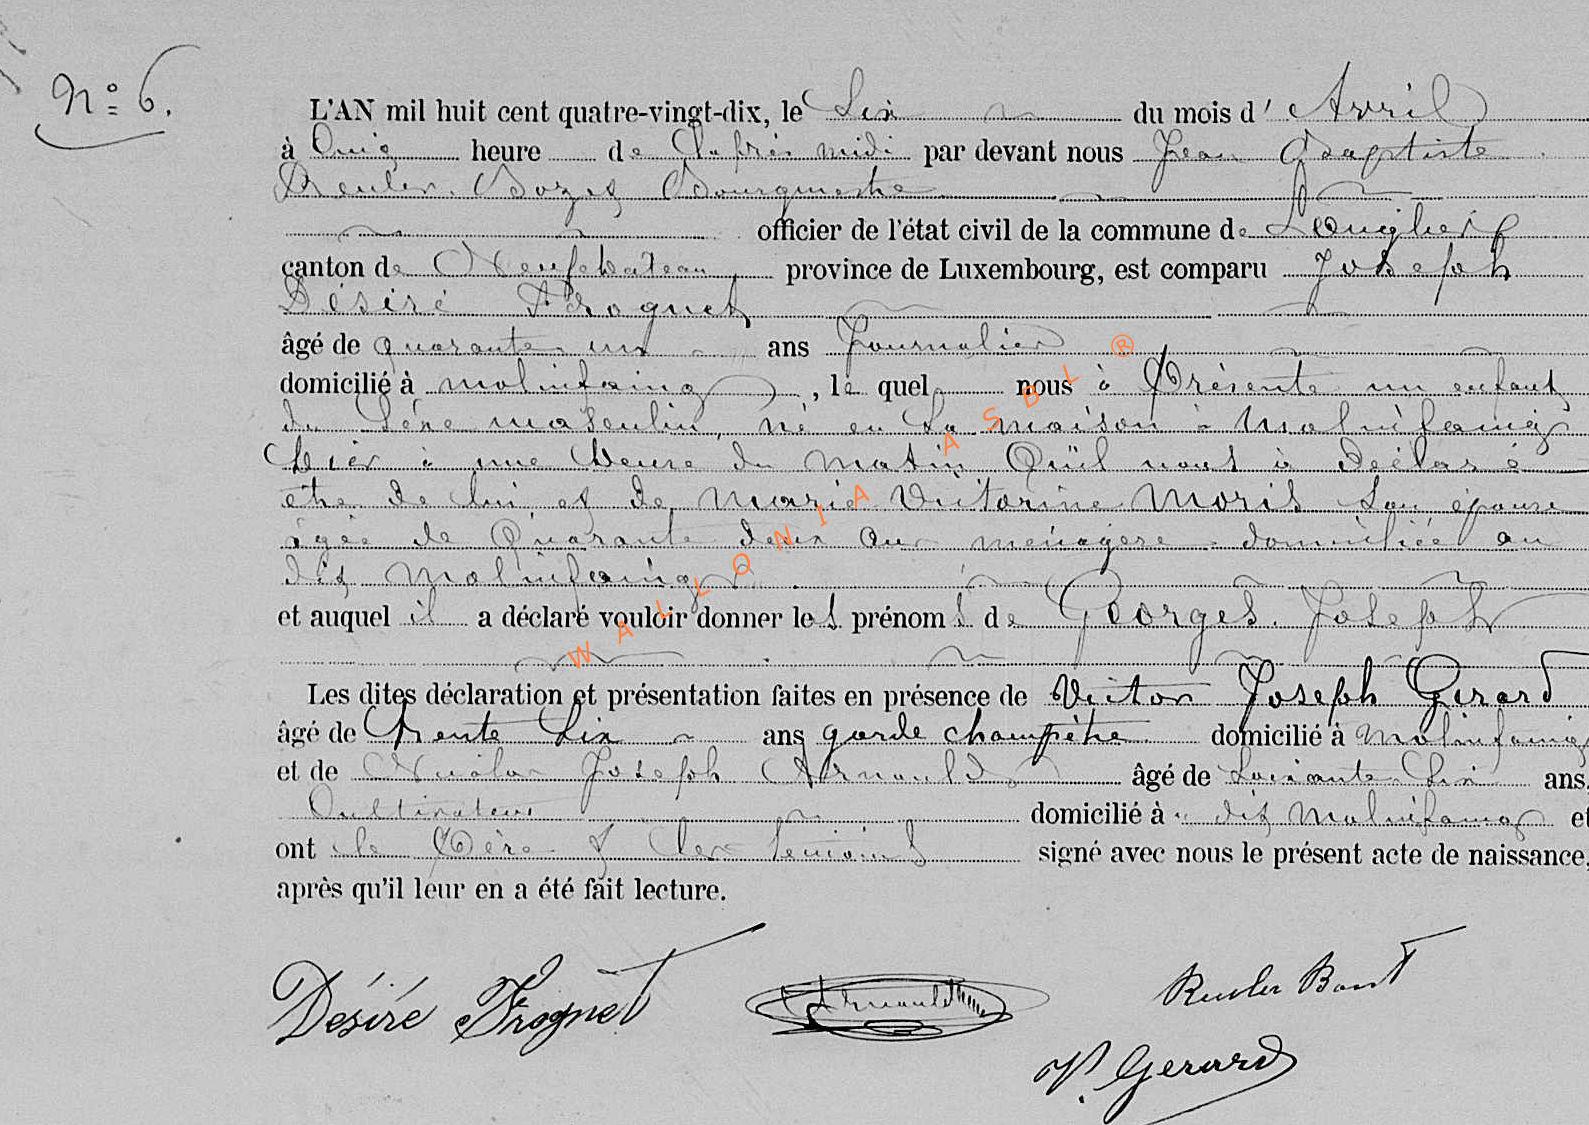 N° 6.
L'AN mil huit cent quatre-vingt-dix, le Six du mois d' Avril
à heure de L'après midi par devant nous Jean Baptiste
Reuler Bourgmestre
officier de l'état civil de la commune de Longlier
canton de Neufchateau province de Luxembourg, est comparu Joseph
Désiré Frognet
âgé de quarante un ans Journalier
domicilié à molinfaing, le quel nous à Présenté un enfant
du Séxe masculin, né en Sa maison à Molinfaing
hier à une heure du matin Qu'il nous à déclaré
être de lui et de Marie Victorine Moris Son épouse
agée de Quarante deux ans ménagère domiciliée au
dit Molinfaing
et auquel il a déclaré vouloir donner les prénoms de Georges Joseph
Les dites déclaration et présentation faites en présence de Victor Joseph Gerard
âgé de Trente Six ans garde champêtre domicilié à Molinfaing
et de Nicolas Joseph Arnould âgé de Soixante Six ans,
Cultivateur domicilié à dit Molinfaing et
ont le Père & les temoins signé avec nous le présent acte de naissance,
après qu'il leur en a été fait lecture.
Désiré Frognet Arnould Reuler Bapt
V. Gerard
WALLONIA ASBL ®